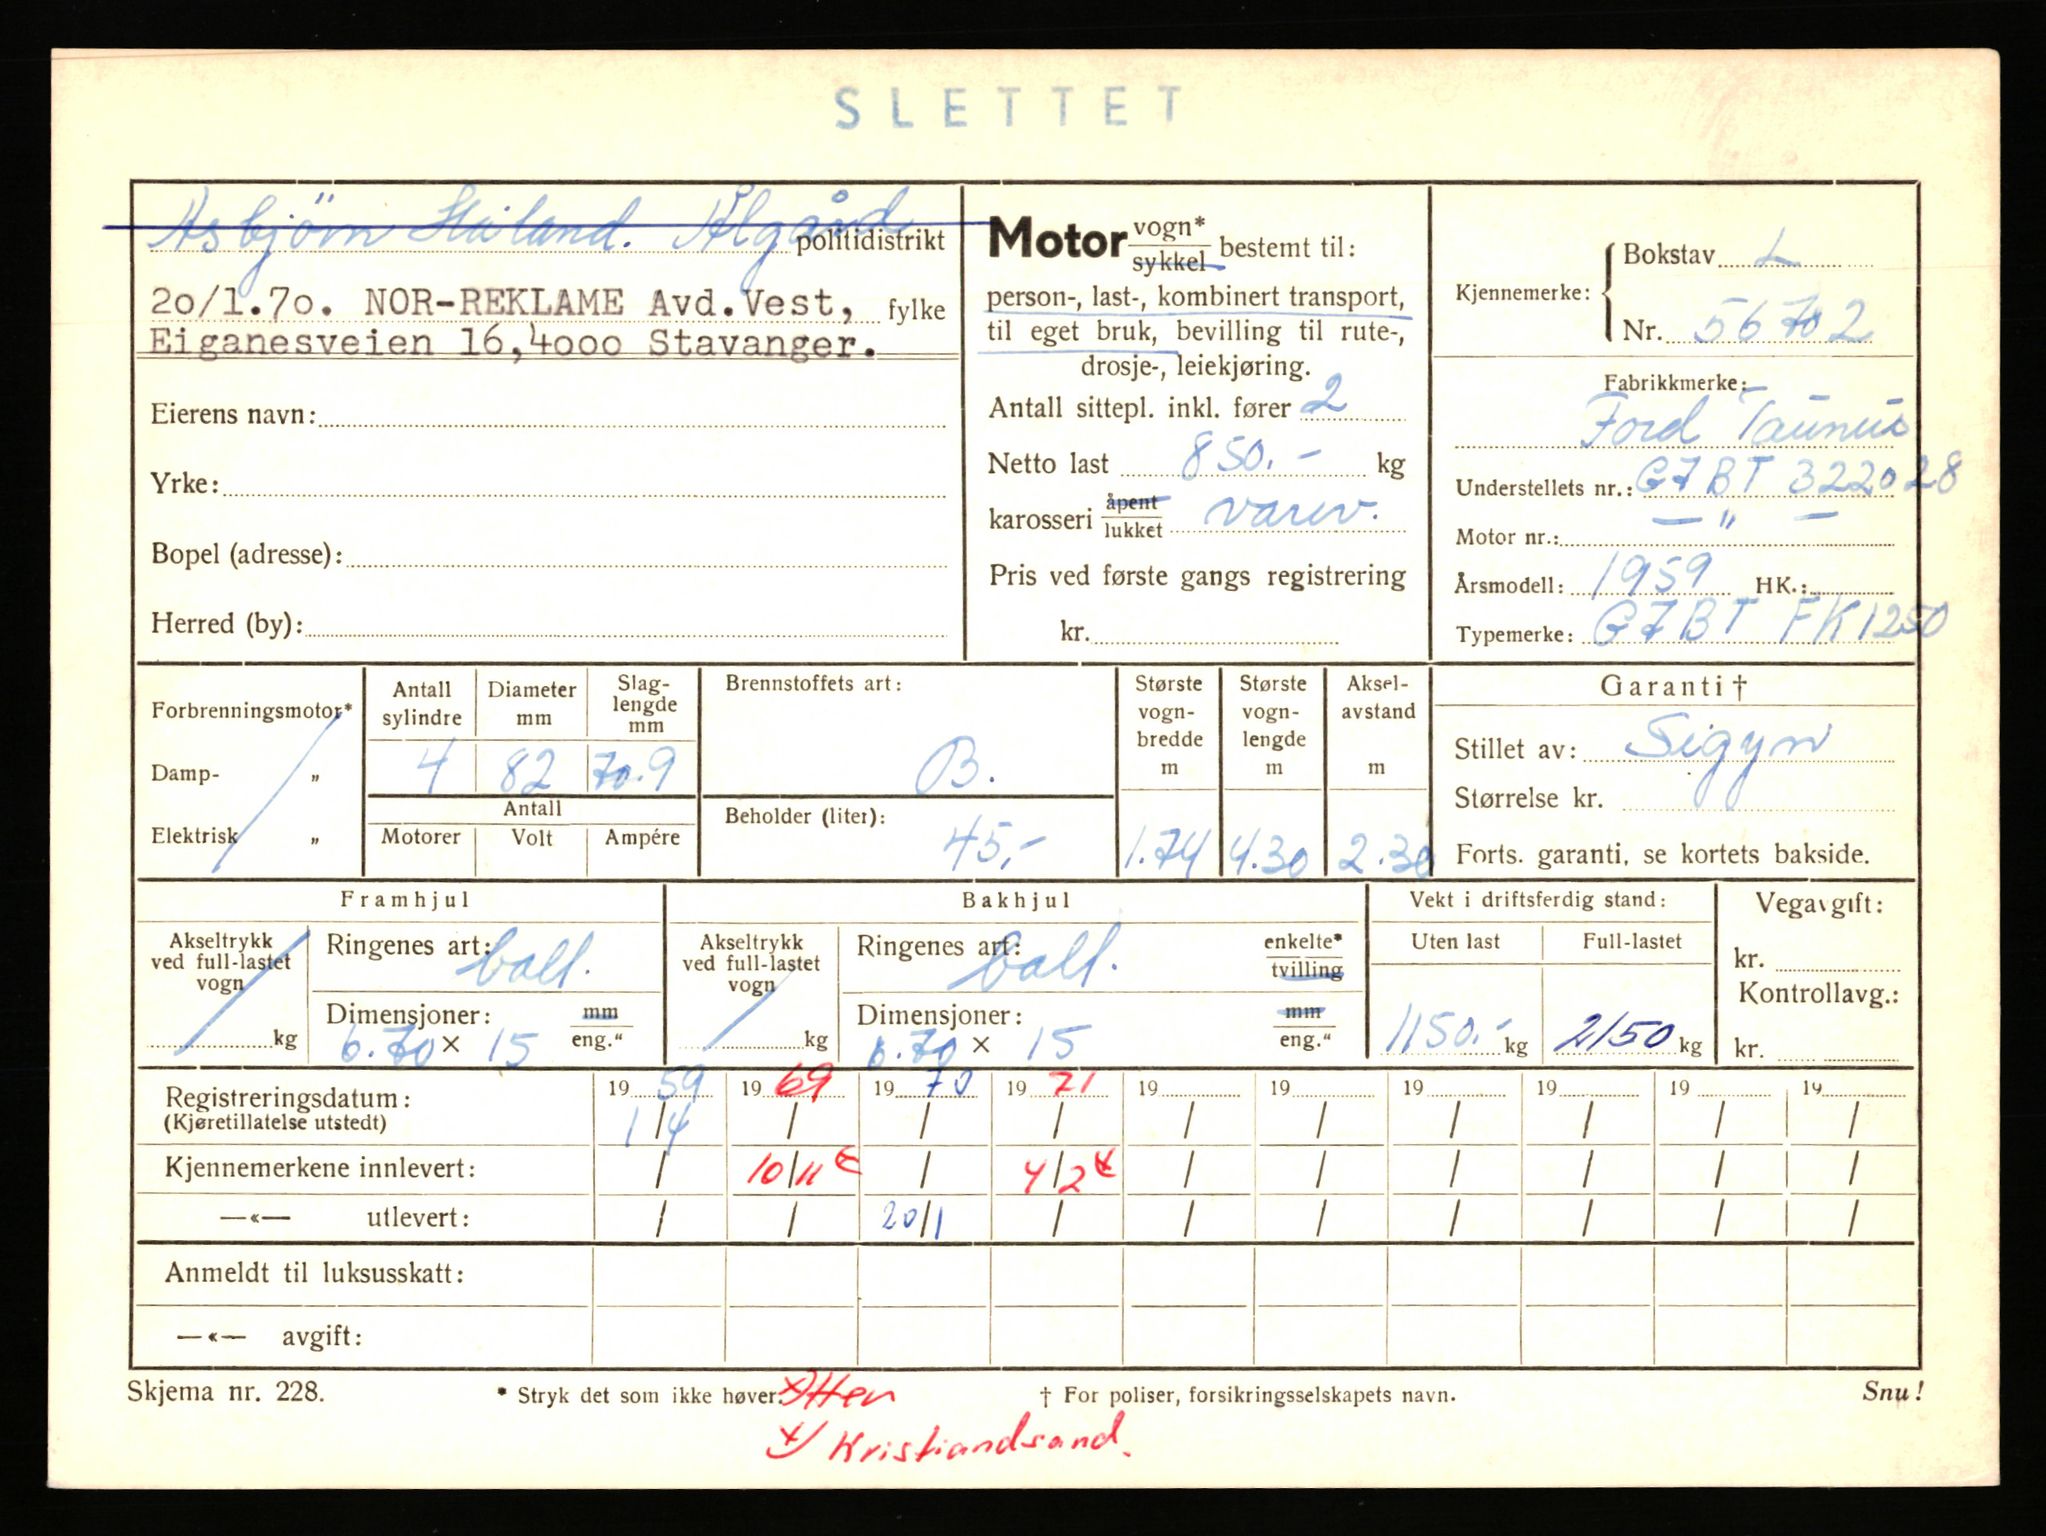 SLETTET
Asbjörn Håland. Ålgård politidistrikt
20/1.70. NOR-REKLAME Avd.Vest, fylke
Eiganesveien 16,4000 Stavanger.
Eierens navn:
Yrke:
Bopel (adresse):
Herred (by):
Motor vogn* sykkel bestemt til:
person-, last-, kombinert transport,
til eget bruk, bevilling til rute-,
drosje-, leiekjøring.
Antall sittepl. inkl. fører 2
Netto last 850.- kg
karosseri åpent lukket varev.
Pris ved første gangs registrering
kr.
Kjennemerke: Bokstav L
Nr. 56702
Fabrikkmerke:
Ford Taunus
Understellets nr.: G7BT 322028
Motor nr.: — " —
Årsmodell: 1959 HK.:
Typemerke: G7BT FK1250
Forbrenningsmotor*
Damp- "
Elektrisk "
Antall sylindre 4
Diameter mm 82
Slag-lengde mm 70.9
Antall
Motorer Volt Ampére
Brennstoffets art: B.
Beholder (liter): 45,-
Største vogn-bredde m 1.74
Største vogn-lengde m 4.30
Aksel-avstand m 2.30
Garanti †
Stillet av: Sigyn
Størrelse kr.
Forts. garanti, se kortets bakside.
Framhjul
Akseltrykk ved full-lastet vogn kg
Ringenes art: ball.
Dimensjoner: mm
6.70 × 15 eng."
Bakhjul
Akseltrykk ved full-lastet vogn kg
Ringenes art: ball. enkelte* tvilling
Dimensjoner: mm
6.70 × 15 eng."
Vekt i driftsferdig stand:
Uten last Full-lastet
1150.- kg 2150 kg
Vegavgift:
kr.
Kontrollavg.:
kr.
Registreringsdatum: 1959 1969 1970 1971 19 19 19 19 19 19
(Kjøretillatelse utstedt) 1/4 / / / / / / / / /
Kjennemerkene innlevert: / 10/11 x / 4/2 x / / / / / /
—«— utlevert: / / 20/1 / / / / / / /
Anmeldt til luksusskatt:
—«— avgift:
Skjema nr. 228. * Stryk det som ikke høver. † For poliser, forsikringsselskapets navn. Snu!
x) Kristiandsand.